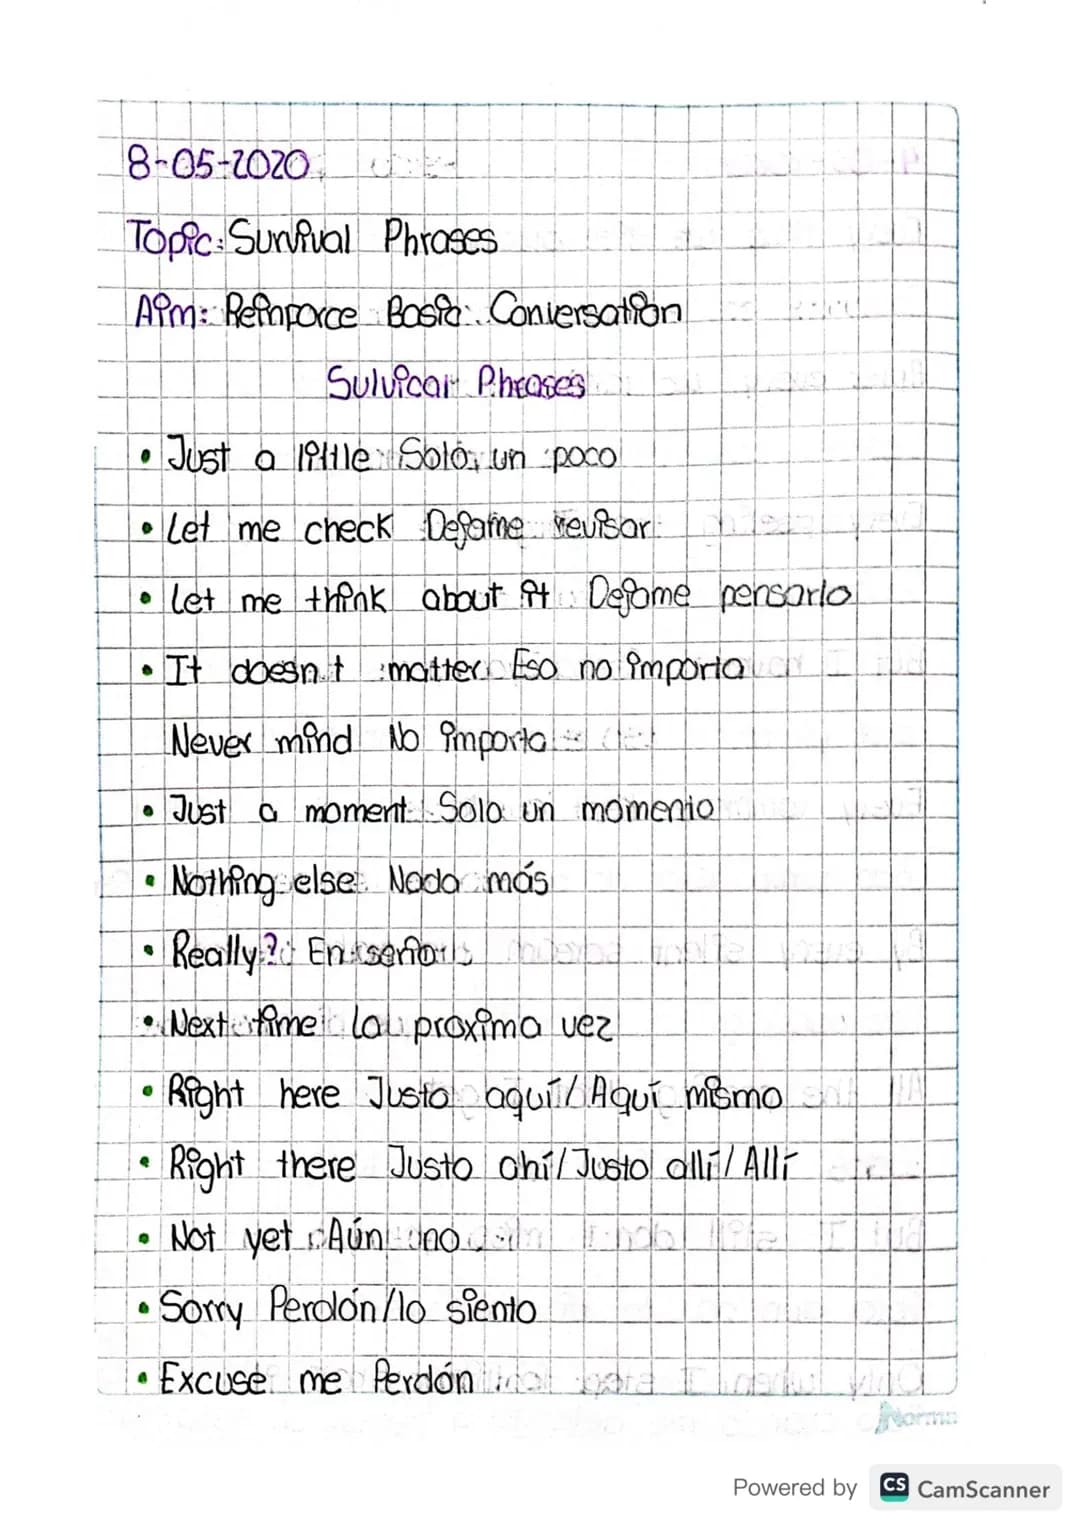 8-05-2020
Topic: Survival Phrases
Aim: Reinporce Basic Conversation
Sulvical Phrases
• Just a little Solo un poco
• Let me check Dejame revisar
• Let me think about it Dejame pensarlo
• It doesn't matter Eso no importa
Never mind No importa
• Just a moment Solo un momento
• Nothing else Nada más
• Really? En serio
• Next time La proxima vez
• Right here Justo aquí/Aquí mismo
• Right there Justo ahí/Justo allí/Allí
• Not yet Aún no
• Sorry Perdón/lo siento
• Excuse me Perdón
Norma
Powered by CS CamScanner